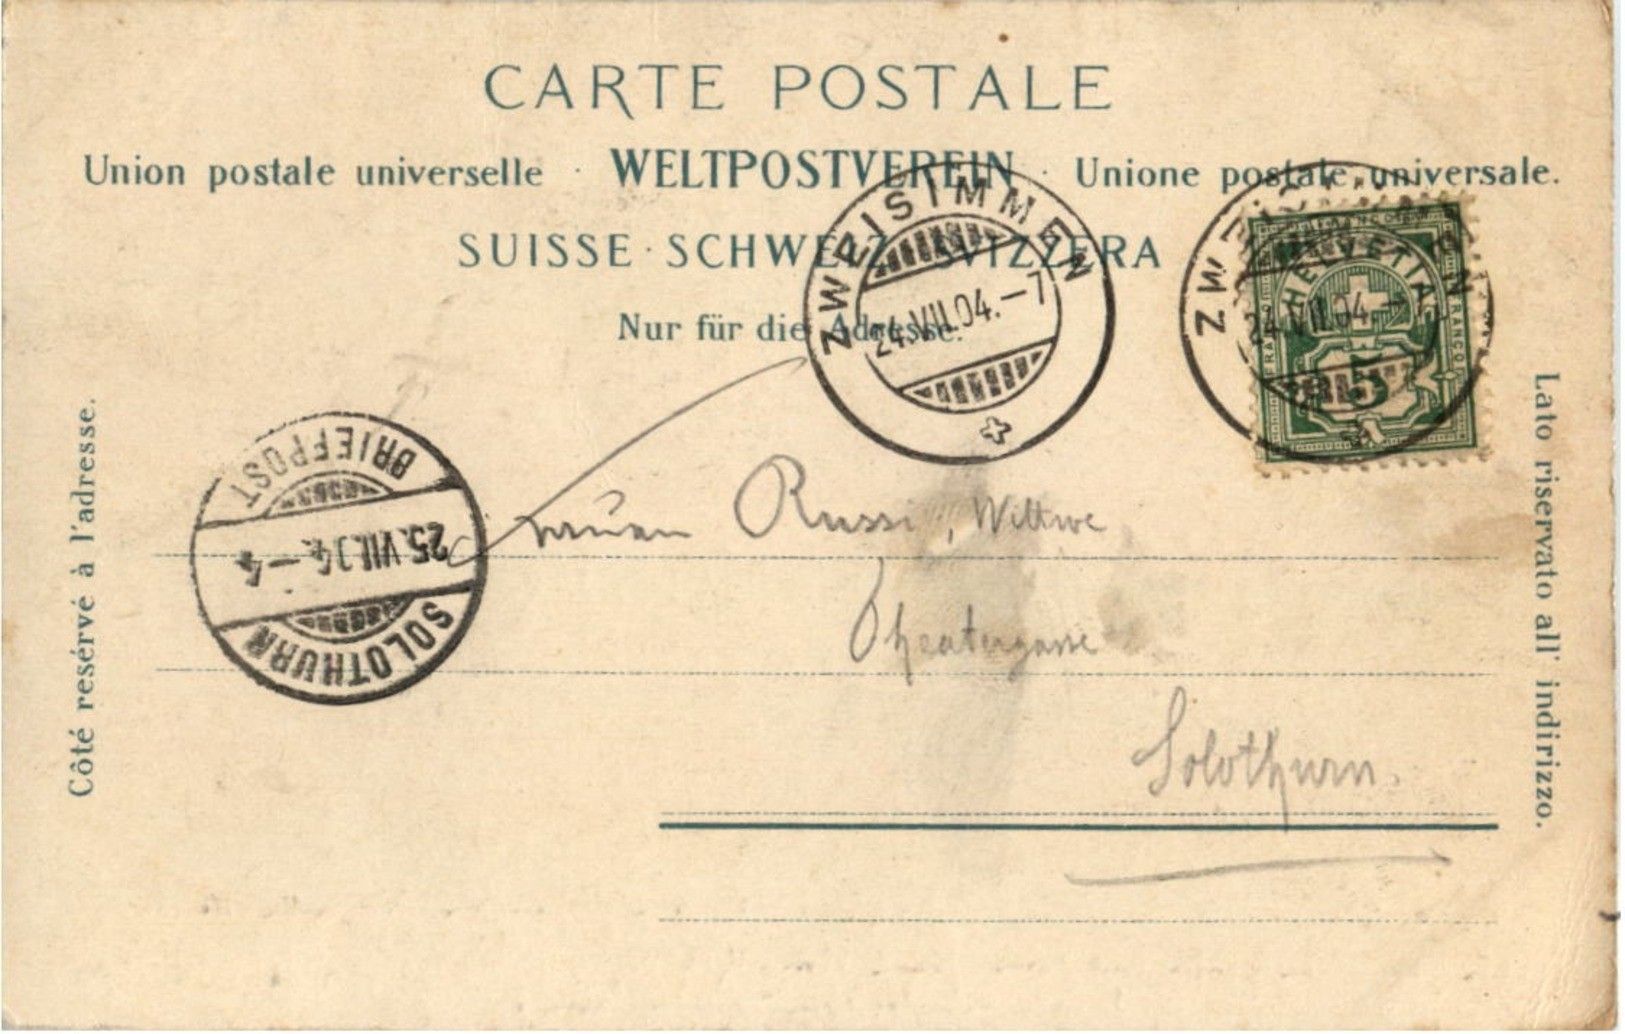 CARTE POSTALE
Union postale universelle · WELTPOSTVEREIN · Unione postale universale.
SUISSE · SCHWEIZ · SVIZZERA
Nur für die Adresse.
ZWEISIMMEN
24.VII.04.–7
ZWEISIMMEN
24.VII.04.–
HELVETIA
FRANCO
5
Côté resérvé à l'adresse.
BRIEFPOST
25.VII.04.–4
SOLOTHURN
Russi, Wittwe
Theatergasse
Solothurn.
Lato riservato all' indirizzo.